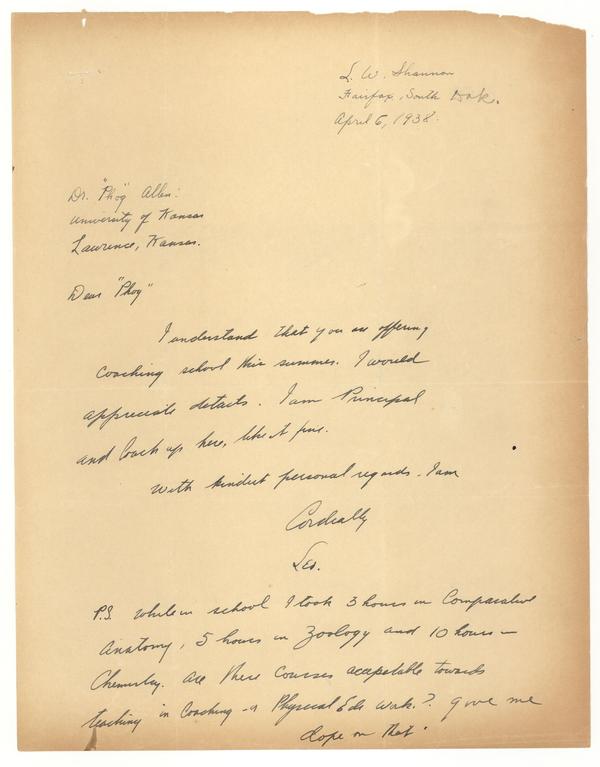 L. W. Shannon
Fairfax, South Dak.
April 6, 1938.
Dr. "Phog" Allen:
University of Kansas
Lawrence, Kansas.
Dear "Phog"
I understand that you are offering
coaching school this summer. I would
appreciate details. I am Principal
and Coach up here, like it fine.
With kindest personal regards. I am
Cordially
Leo.
P.S. While in school I took 3 hours in Comparative
Anatomy, 5 hours in Zoology and 10 hours in
Chemistry. Are these courses acceptable towards
teaching in Coaching or Physical Edu work.? give me
dope on that.